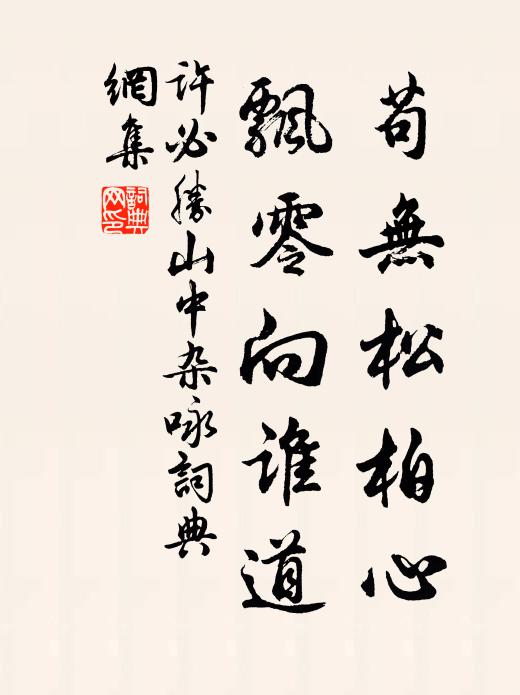 苟無松柏心
飄零向谁道
许必勝山中杂咏詞典
網集
詞典
网印